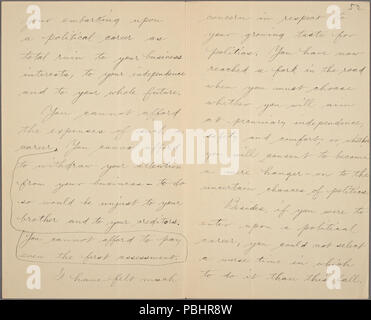 your embarking upon
a political career as
total ruin to your business
interests, to your independence
and to your whole future.
You cannot afford
the expenses of such
career. You cannot afford
to withdraw your attention
from your business - to do
so would be unjust to your
brother and to your creditors.
You cannot afford to pay
even the first assessment.
I have felt much
52
concern in respect to
your growing taste for
politics. You have now
reached a fork in the road
when you must choose
whether you will aim
at pecuniary independence,
and comfort, or whether
you will consent to become
a mere hanger-on to the
uncertain chances of politics.
Besides, if you were to
enter upon a political
career, you could not select
a worse time in which
to do it than this fall.
alamy
Image ID: PBHR8W
www.alamy.com